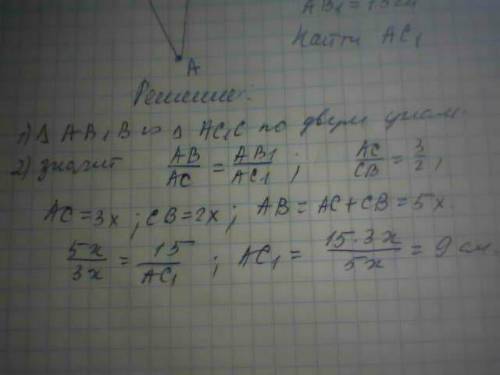 A
AB₁ = 15 см
Найти AC₁
Решение:
1) Δ AB₁B ∽ Δ AC₁C по двум углам.
2) значит AB/AC = AB₁/AC₁ ; AC/CB = 3/2,
AC = 3x ; CB = 2x ; AB = AC + CB = 5x
5x/3x = 15/AC₁ ; AC₁ = 15·3x/5x = 9 см.